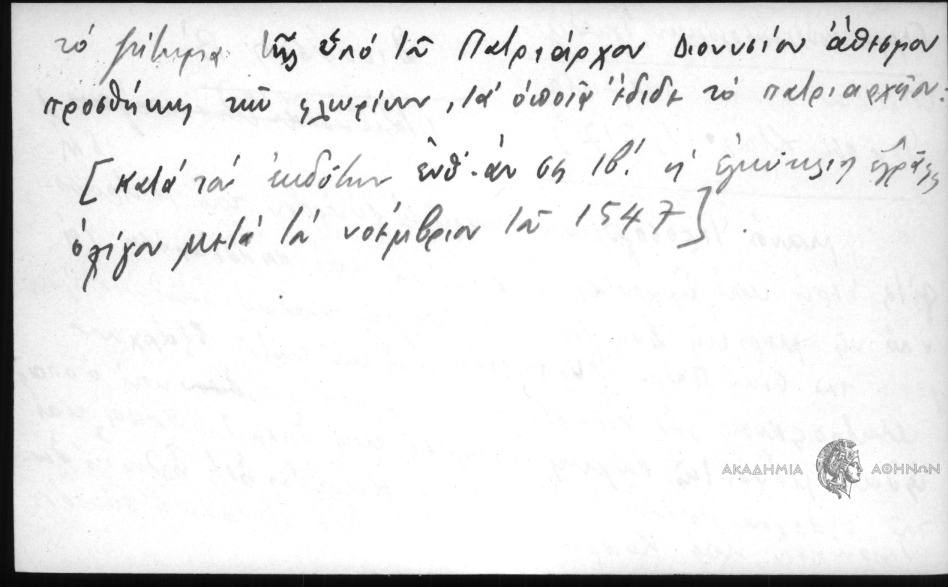 τό ζήτημα τῆς ὑπό τοῦ Πατριάρχου Διονυσίου ἀθέσμου
προσθήκης τῶν φλωρίων, τά ὁποῖα ἔδιδε τό πατριαρχεῖον.
[Κατά τόν ἐκδότην ἔνθ. ἀν σς ιβ'. ἡ ἐγκύκλιος ἐγράφη
ὀλίγον μετά τόν νοέμβριον τοῦ 1547]
ΑΚΑΔΗΜΙΑ ΑΘΗΝΩΝ